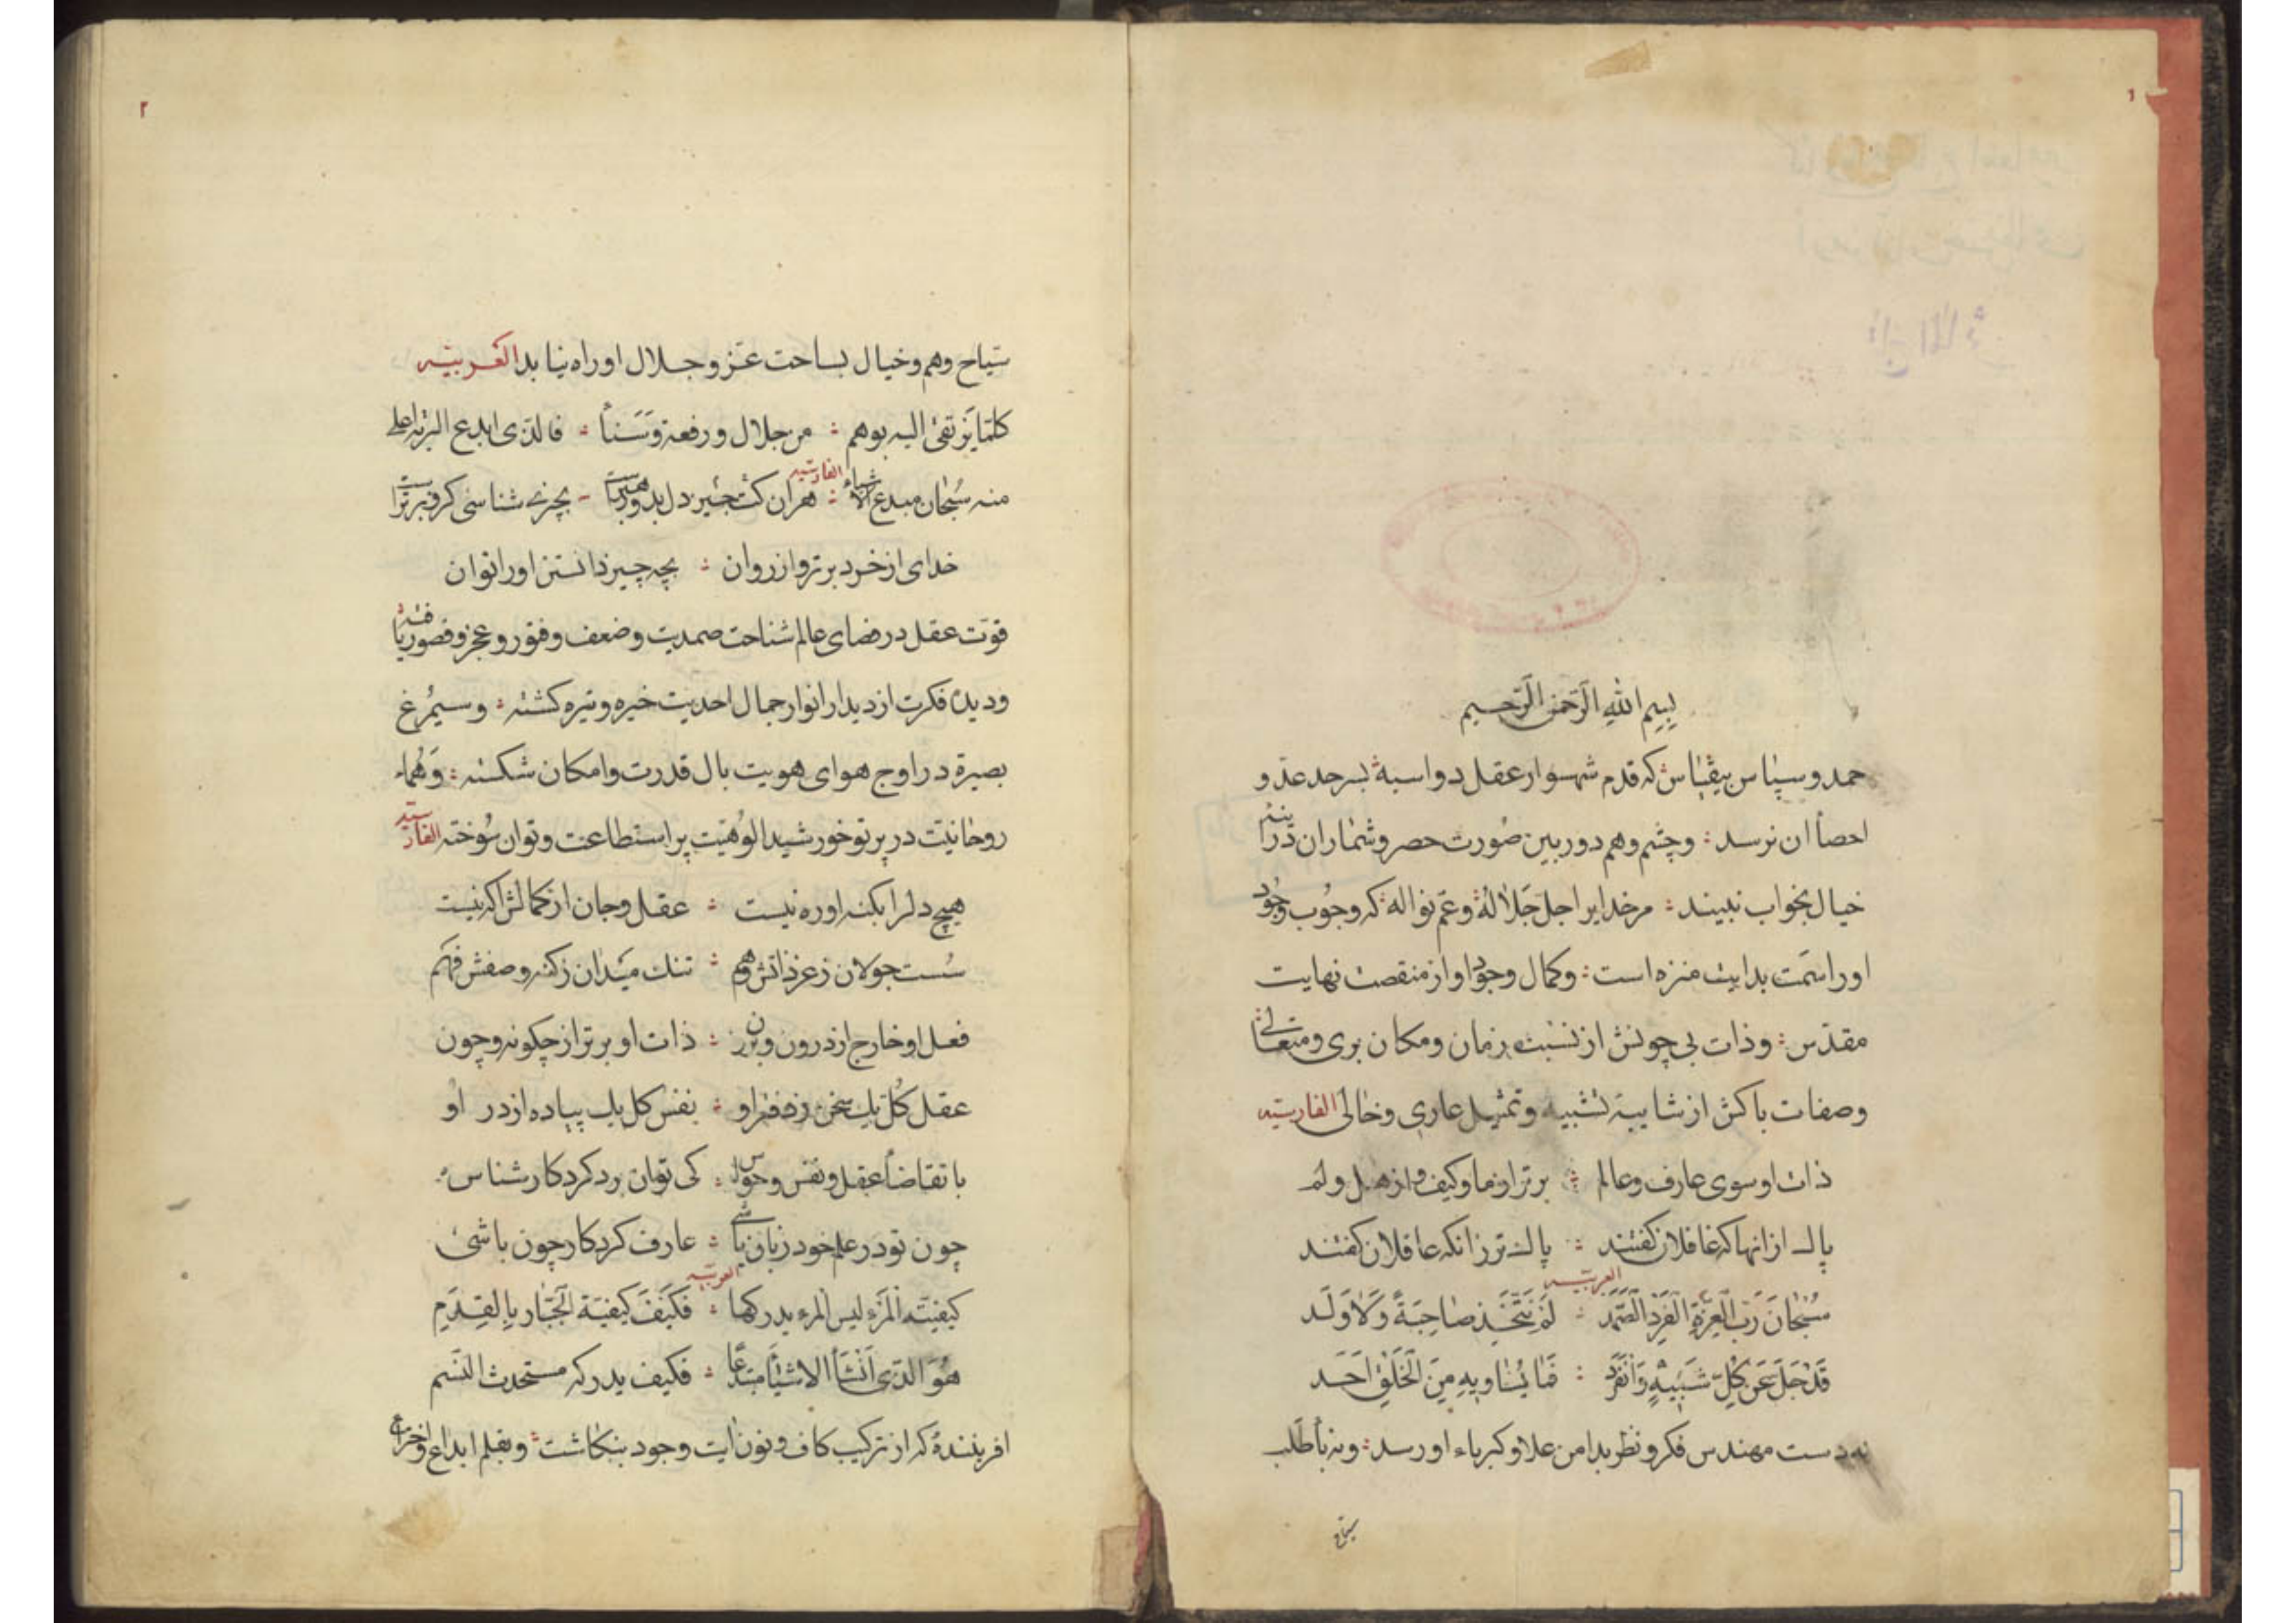 بسم الله الرحمن الرحیم
حمد و سپاس بیقیاس که قدم شهسوار عقل دو اسبه بسرحد عد و
احصأ ان نرسد : و چشم وهم دوربین صورت حصر و شماران در اینه
خیال بخواب نبیند : مر خدایرا جل جلاله و عم نواله که وجوب وجود
او را سمت بدایت منزه است : و کمال وجود او از منقصت نهایت
مقدس : و ذات بی چونش از نسبت زمان و مکان بری و متعالی
و صفات باکش از شایبة تشبیه و تمثیل عاری و خالی الفارسیه
ذات او سوی عارف و عالم : برتر از ما و کیف و از هل و لم
پاک از انها که غافلان کفتند : پاک تر زانکه عاقلان کفتند
العربیه
سُبْحَانَ رَبِّ الْعِزَّةِ الْفَرْدِ الصَّمَد : لَمْ يَتَّخِذ صَاحِبَةً وَلَا وَلَد
قَدْ جَلَّ عَنْ كُلِّ شَبِيْهٍ وَانْفَرَد : فَمَا يُسَاوِيهِ مِنَ الْخَلْقِ اَحَد
نه دست مهندس فکر و نظر بدامن علا و کبریاء او رسد : و نه بأ طلب
سیاح
۲
سیاح وهم و خیال بساحت عز و جلال او راه نیابد العربیه
کلما یرتقی الیه بوهم : من جلال و رفعة و سنأ : فالذی ابدع البریة اعلی
منه سُبحان مبدع الاشیاء الفارسیه : هر ان کت چنین دل بدو رهبرست - بچیزی شناسی کزو برترست
خدای از خرد برتر و از روان : بچه چیز دانستن او را توان
قوّت عقل در فضای عالم شناخت صمدیت و ضعف و فتور و عجز و قصور یافته
و دیدۀ فکرت از دیدار انوار جمال احدیت خیره و تیره کشته : و سیمرغ
بصیرة در اوج هوای هویت بال قدرت و امکان شکسته : و هُماء
روحانیّت در پرتو خورشید الوُهیّت پر استطاعت و توان سُوخته الفارسیه
هیچ دلرا بکنه او ره نیست : عقل و جان از کمالش اکه نیست
سُست جولان ز عز ذاتش وهم : تنک میدان ز کنه وصفش فهم
فعل او خارج از درون و برون : ذات او برتر از چکونه و چون
عقل کُل یک سخن ز دفتر او : نفس کل یک پیاده از در او
با تقاضأ عقل و نفس و حواس : کی توان بود کردکار شناس
چون تو در علم خود زبون باشی : عارف کردکار چون باشی
العربیه
کیفیّة الْمَرْءِ لیس المرء یدرکها : فَکَیْفَ کَیْفِیّة الْجَبّار بِالقِدَمِ
هُوَ الَّذی اَنْشَأَ الاشیَأَ مبتدعًا : فکیف یدرکه مستحدث النسم
افرینندۀ که از ترکیب کاف و نون ایت وجود بنکاشت : و بقلم ابداع و اختراع